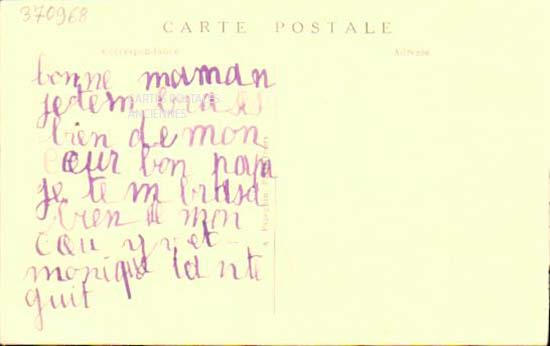 370968
CARTE POSTALE
Correspondance
Adresse
bonne maman
je tem brase
CARTES POSTALES
ANCIENNES
bien de mon
cœur bon papa
je te m brase
bien de mon
cœu yvet
monique tante
guit